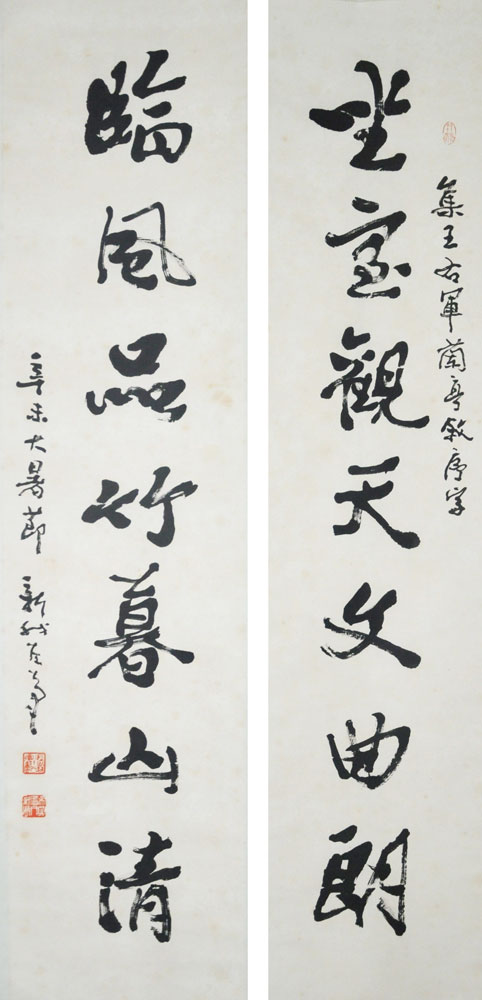 集王右軍蘭亭敘序字
坐室觀天文曲朗
臨風品竹暮山清
辛未大暑節 新我左筆